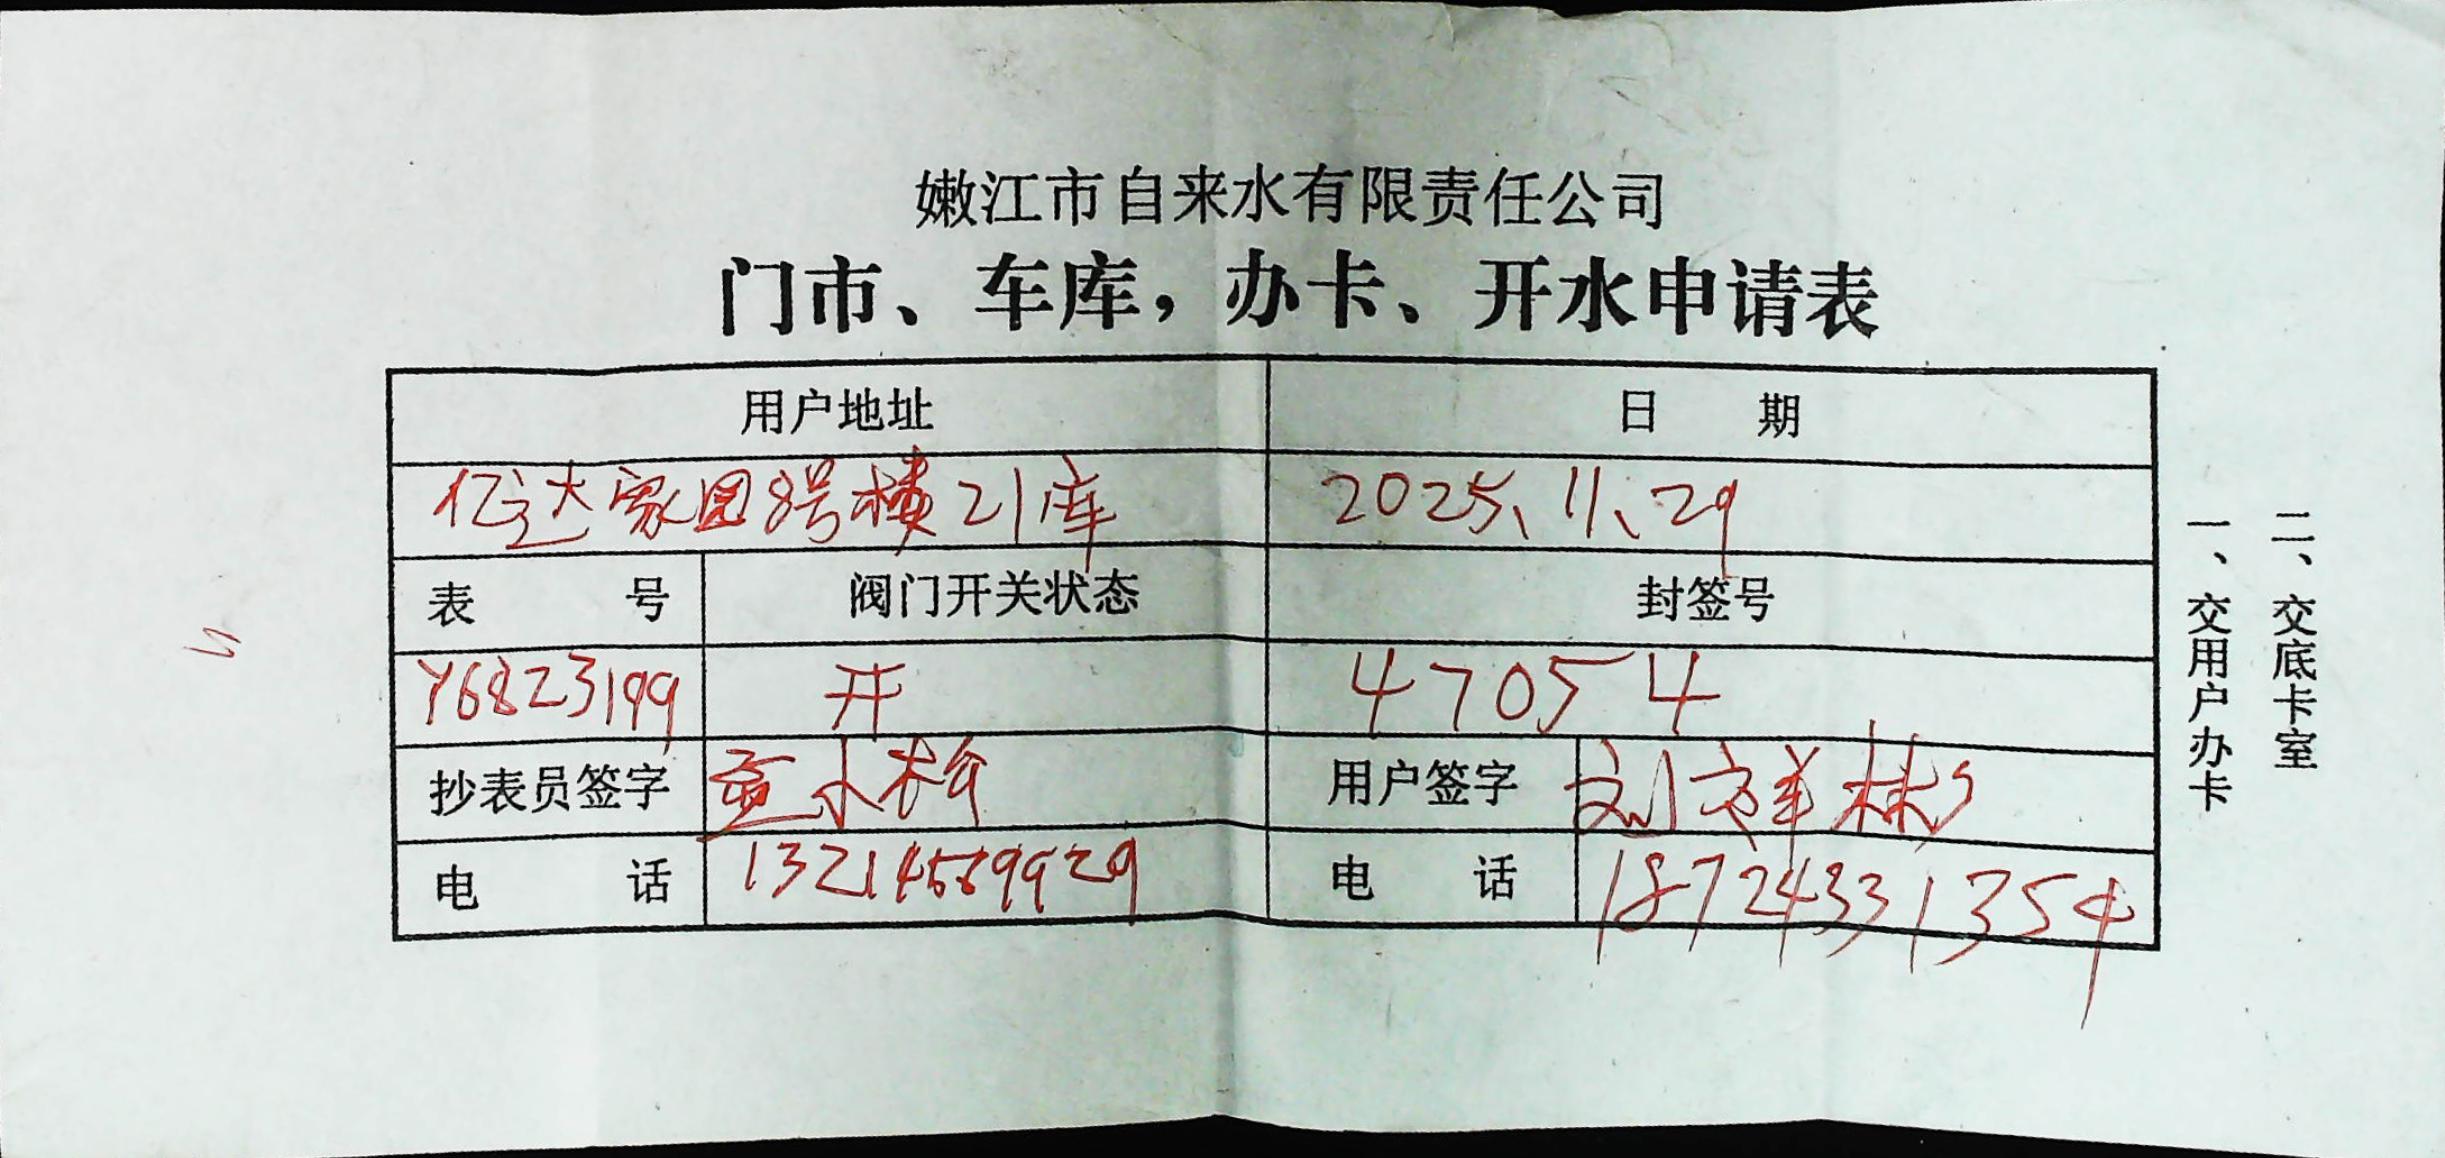 嫩江市自来水有限责任公司
门市、车库，办卡、开水申请表
用户地址 日 期
亿达家园8号楼21库 2025、11、29
表 号 阀门开关状态 封签号
Y6823199 开 47054
抄表员签字 用户签字 刘
电 话 13214589929 电 话 18724331354
一、交用户办卡
二、交底卡室